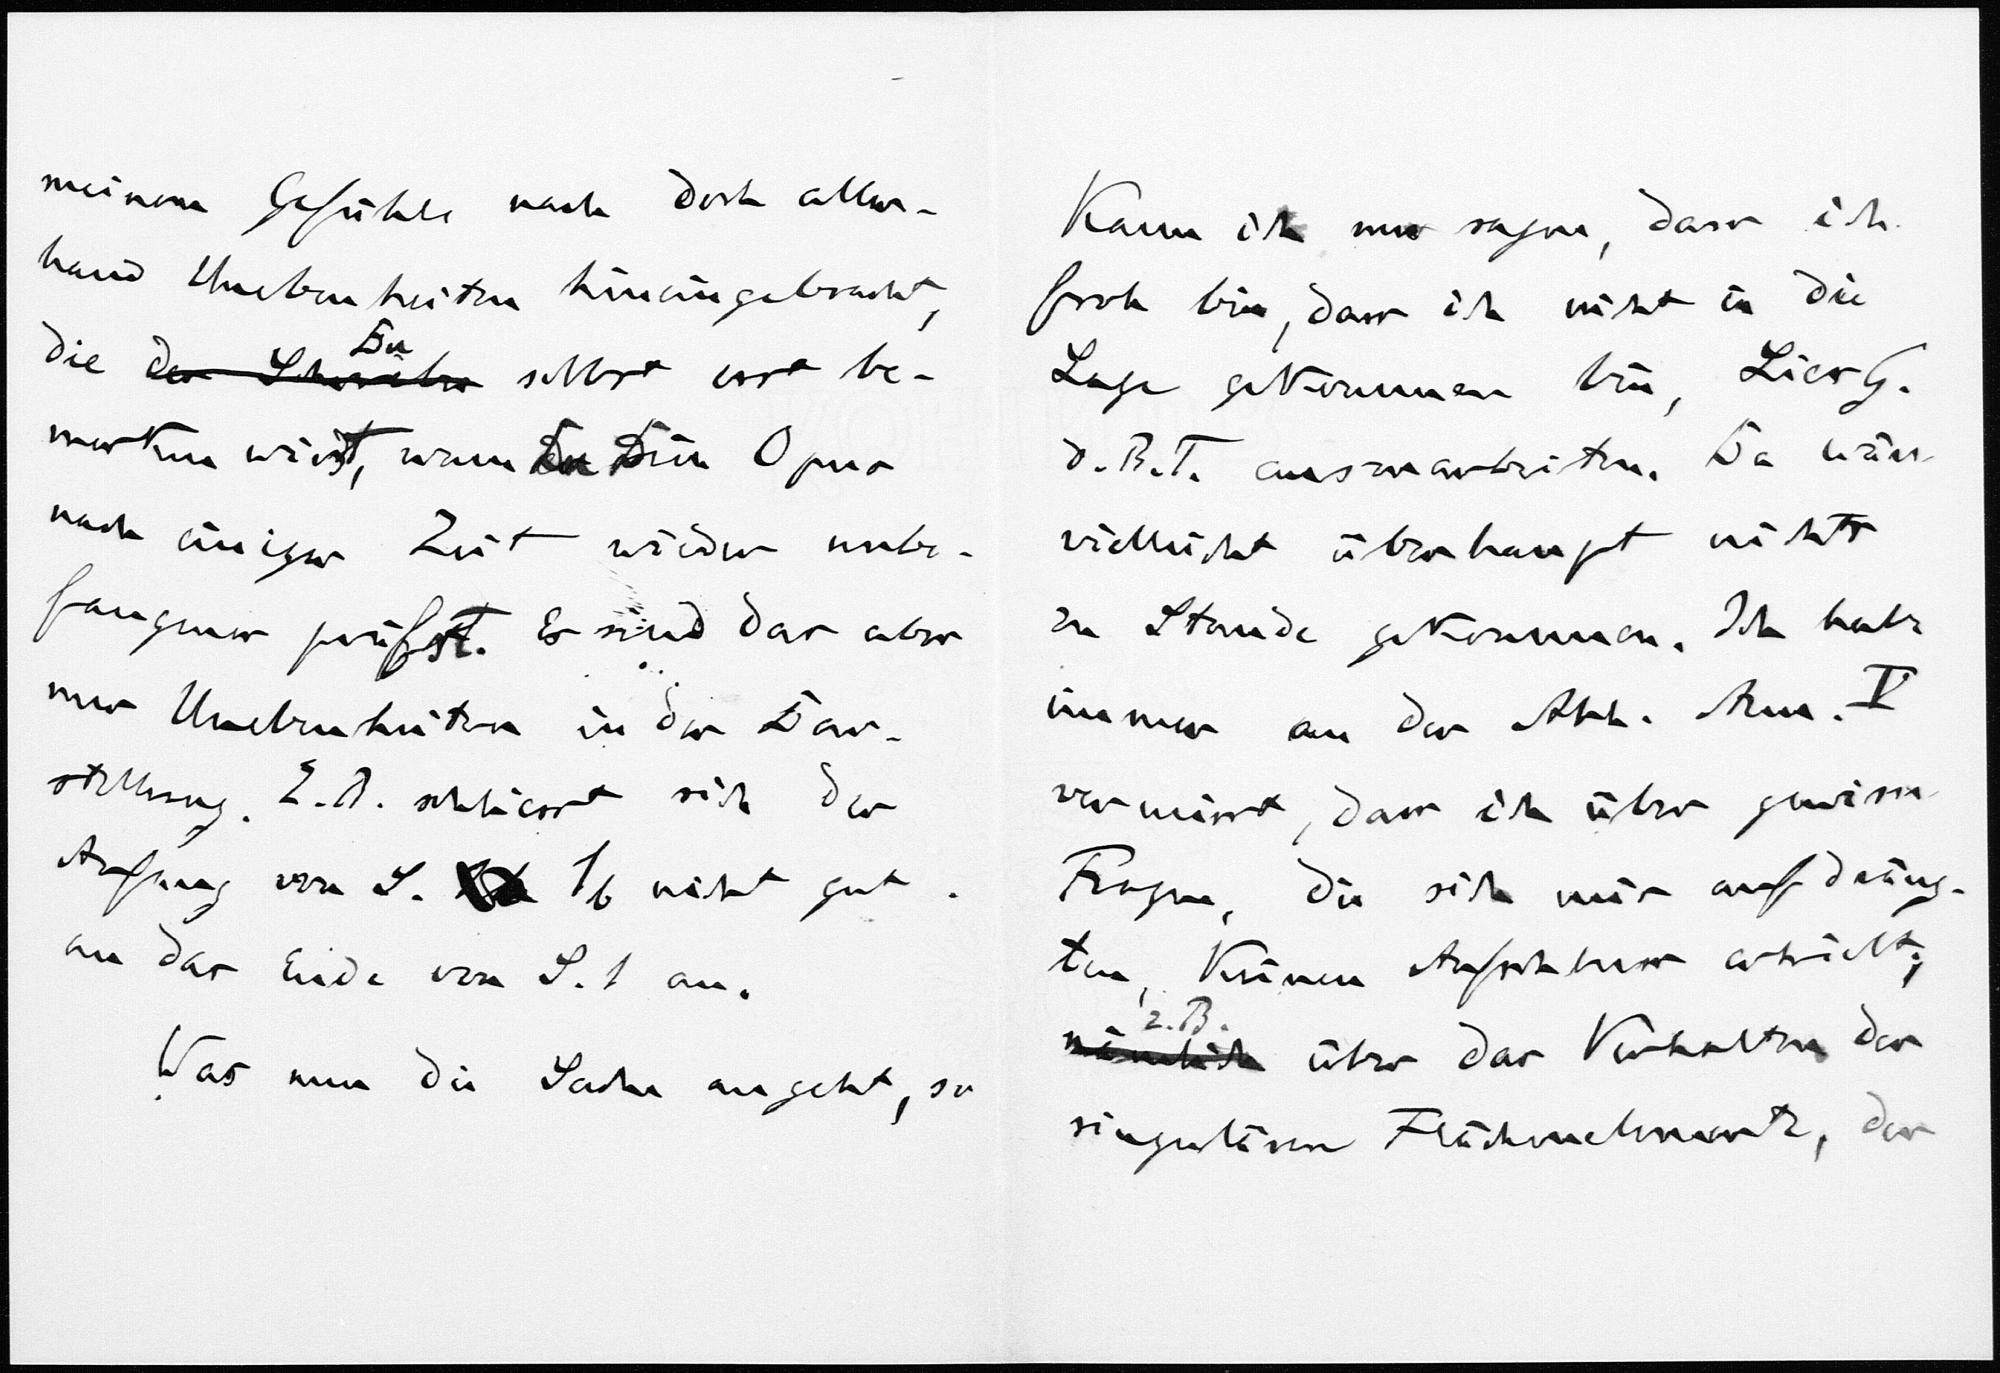 meinem Gefühle nach doch aller-
hand Unebenheiten hineingebracht,
die Du
der Schreiber selbst erst be-
merken wirst, wenn Du Dein Opus
nach einiger Zeit wieder unbe-
fangener prüfst. Es sind das aber
nur Unebenheiten in der Dar-
stellung. Z.B. schliesst sich der
Anfang von S. 1b nicht gut
an das Ende von S. 1 an.
Was nun die Sache angeht, so
Kann ich nur sagen, dass ich
froh bin, dass ich nicht in die
Lage gekommen bin, Lies G.
d.B.T. auszuarbeiten. Da wäre
vielleicht überhaupt nichts
zu Stande gekommen. Ich habe
immer an der Abh. Ann. V
vermisst, dass ich über gewisse
Fragen, die sich mir aufdräng-
ten, keinen Aufschluss erhielt;
z.B.
nämlich über das Verhalten der
singulären Flächenelemente, der